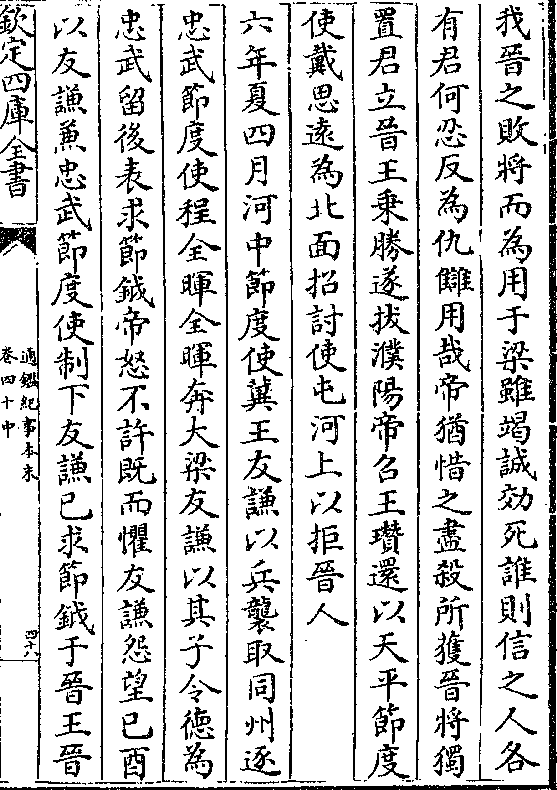 我晉之敗將而為用于梁雖竭誠効死誰則信之人各
有君何忍反為仇讎用哉帝猶惜之盡殺所獲晉將獨
置君立晉王乗勝遂拔濮陽帝召王瓚還以天平節度
使戴思遠為北面招討使屯河上以拒晉人
六年夏四月河中節度使冀王友謙以兵襲取同州逐
忠武節度使程全暉全暉奔大梁友謙以其子令德為
忠武留後表求節鉞帝怒不許既而懼友謙怨望已酉
以友謙兼忠武節度使制下友謙已求節鉞于晉王晉
欽定四庫全書
通鑑紀事本末
卷四十中
四十八